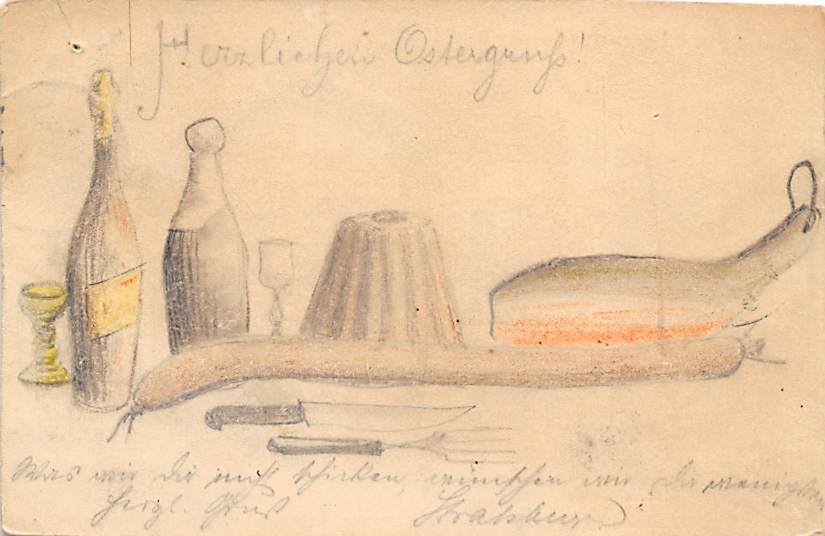 Herzlichen Ostergruß!
Was wir Dir nicht schicken, wünschen wir Dir wenigstens
Herzl. Gruß Stralsburg